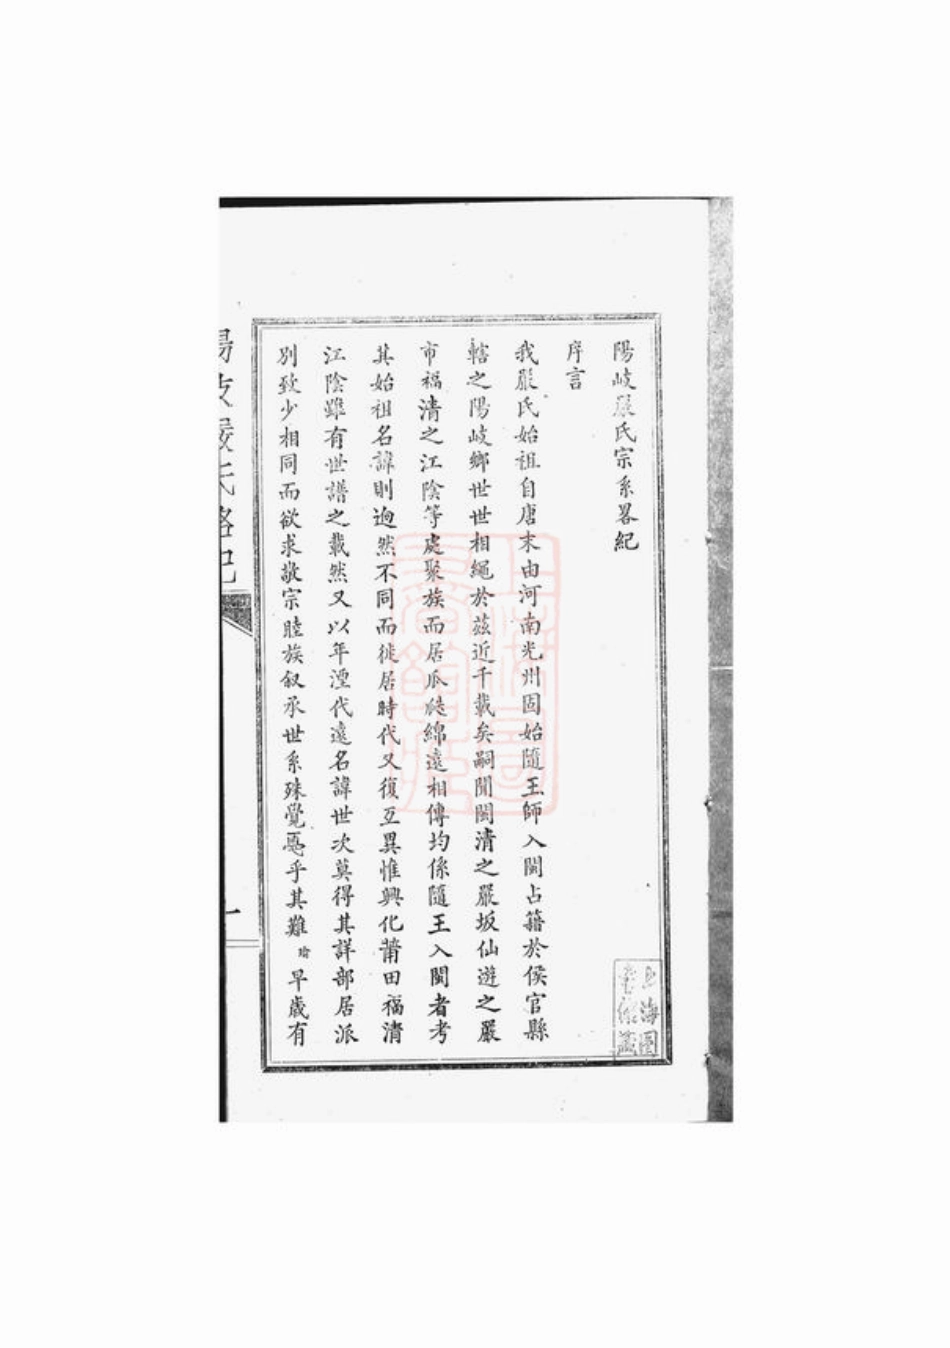 陽岐嚴氏宗系畧紀
序言
我嚴氏始祖自唐末由河南光州固始隨王師入閩占籍於侯官縣
轄之陽岐鄉世世相繩於茲近千載矣嗣聞閩清之嚴坂仙遊之嚴
市福清之江陰等處聚族而居瓜瓞綿遠相傳均係隨王入閩者考
其始祖名諱則逈然不同而徙居時代又復互異惟興化莆田福清
江陰雖有世譜之載然又以年湮代遠名諱世次莫得其詳部居派
別致少相同而欲求敬宗睦族叙承世系殊覺戞乎其難 瑜 早歲有
陽岐嚴氏略紀
一
上海圖書館藏